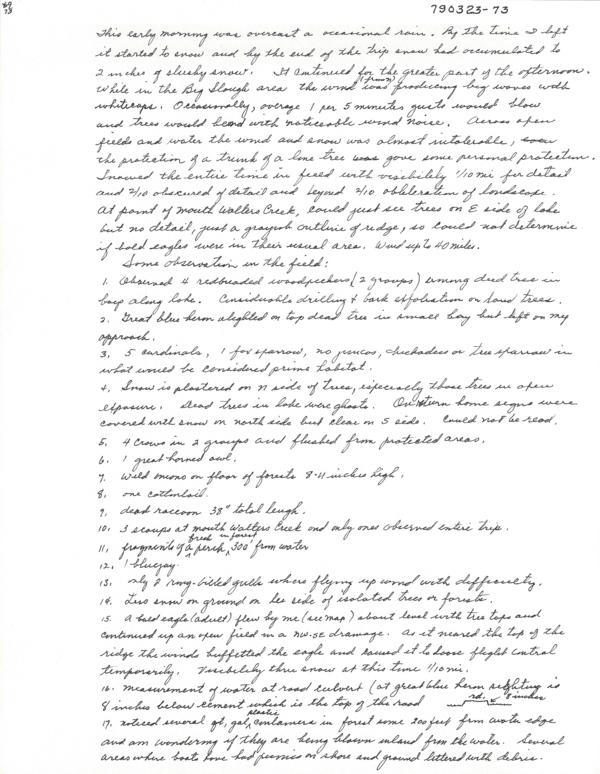 69
73
790323-73
This early morning was overcast & occasional rain. By the time I left
it started to snow and by the end of the trip snow had accumulated to
2 inches of slushy snow. It continued for the greater part of the afternoon.
While in the Big Slough area the wind (from) was producing big waves with
whitecaps. Occasionally, average 1 per 5 minutes gusts would blow
and trees would bend with noticeable wind noise. Across open
fields and water the wind and snow was almost intolerable, even
the protection of a trunk of a lone tree was gave some personal protection.
Snowed the entire time in field with visibility 1/10 mi for detail
and 2/10 obscured of detail and beyond 2/10 obliteration of landscape.
At point of mouth Walters Creek, could just see trees on E side of lake
but no detail, just a grayish outline of ridge, so could not determine
if bald eagles were in their usual area. Wind up to 40 miles.
Some observation in the field:
1. Observed 4 redheaded woodpeckers (2 groups) among dead tree in
bay along lake. Considerable drilling & bark exfoliation on said trees.
2. Great blue heron alighted on top dead tree in small bay but left on my
approach.
3, 5 cardinals, 1 fox sparrow, no juncos, chickadees or tree sparrow in
what would be considered prime habitat.
4. Snow is plastered on N side of trees, especially those trees in open
exposure. Dead trees in lake were ghosts. On return home signs were
covered with snow on north side but clear on S side. Could not be read.
5. 4 crows in 2 groups and flushed from protected areas.
6. 1 great horned owl.
7. Wild onions on floor of forests 8-11 inches high.
8. one cottontail.
9. dead raccoon 38" total length.
10. 3 scaups at mouth Walters Creek and only ones observed entire trip.
11. fragments of a fresh perch, in forest 300' from water
12. 1 bluejay.
13. only 2 ring-billed gulls where flying up wind with difficulty.
14. Less snow on ground on lee side of isolated trees or forests.
15. A bald eagle (adult) flew by me (see map) about level with tree tops and
continued up an open field in a NW-SE drainage. As it neared the top of the
ridge the winds buffetted the eagle and caused it to loose flight control
temporarily. Visibility thru snow at this time 1/10 mi.
16. Measurement of water at road culvert (at great blue heron sighting is
8 inches below cement which is the top of the road rd. 8 inches
17. noticed several qt, gal, plastic containers in forest some 200 feet from water edge
and am wondering if they are being blown inland from the water. Several
areas where boats have had picnics on shore and ground littered with debris.